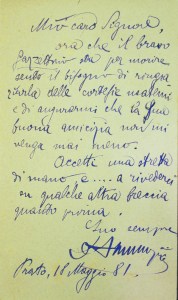 Mio caro Signore,
ora che il bravo
Gazzettino sta per morire
sento il bisogno di ringra
ziarla della cortesia usatemi
e di augurarmi che la Sua
buona amicizia non mi
venga mai meno.
Accetti una stretta
di mano e .... a rivederci
su qualche altra breccia
quanto prima.
Suo sempre
Prato, 18 Maggio 81.